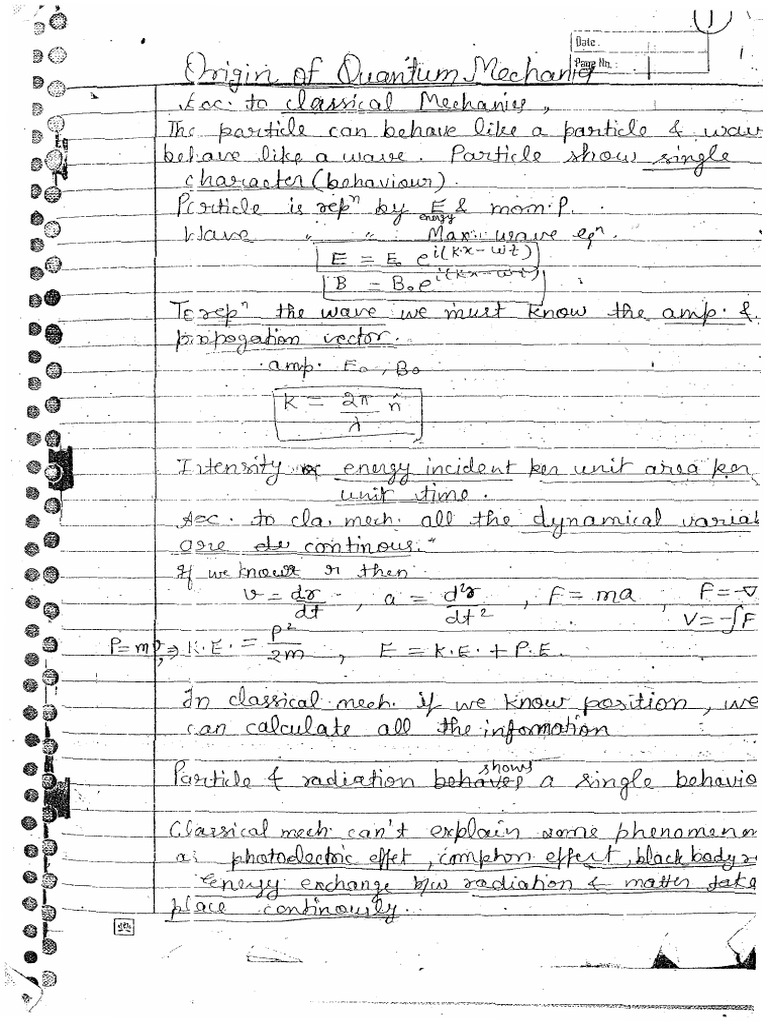 1
Date.
Page No.: 1
Origin of Quantum Mechanics
Acc. to classical Mechanics,
The particle can behave like a particle & wave
behave like a wave. Particle show single
character (behaviour).
Particle is repⁿ by E & mom. P.
energy
Wave " " Max. wave eqⁿ
E = E₀ e^{i(k·x - ωt)}
B = B₀ e^{i(k·x - ωt)}
To repⁿ the wave we must know the amp. &
propogation vector.
amp. E₀, B₀
K = 2π/λ n̂
Intensity energy incident per unit area per
unit time.
Acc. to cla. mech. all the dynamical variab
are continous."
If we know r then
v = dr/dt , a = d²r/dt² , F = ma , F = -∇
V = -∫F
P = mv, ⇒ K.E. = P²/2m , E = K.E. + P.E.
In classical mech. if we know position, we
can calculate all the information
Particle & radiation behaves shows a single behavio
Classical mech. can't explain some phenomenon
as photoelectric effet, compton effect, black body r
energy exchange b/w radiation & matter take
place continously.